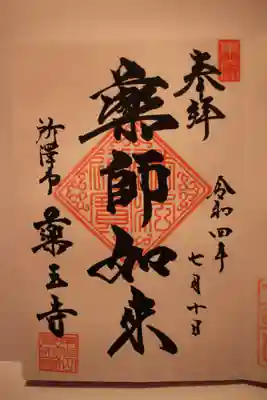 奉拝
令和四年
七月十日
薬師如来
所澤市
薬王寺